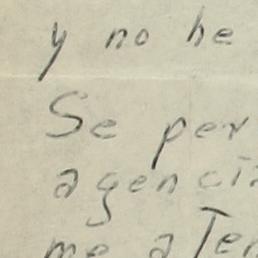 y no he
Se per
agenci
me aTen